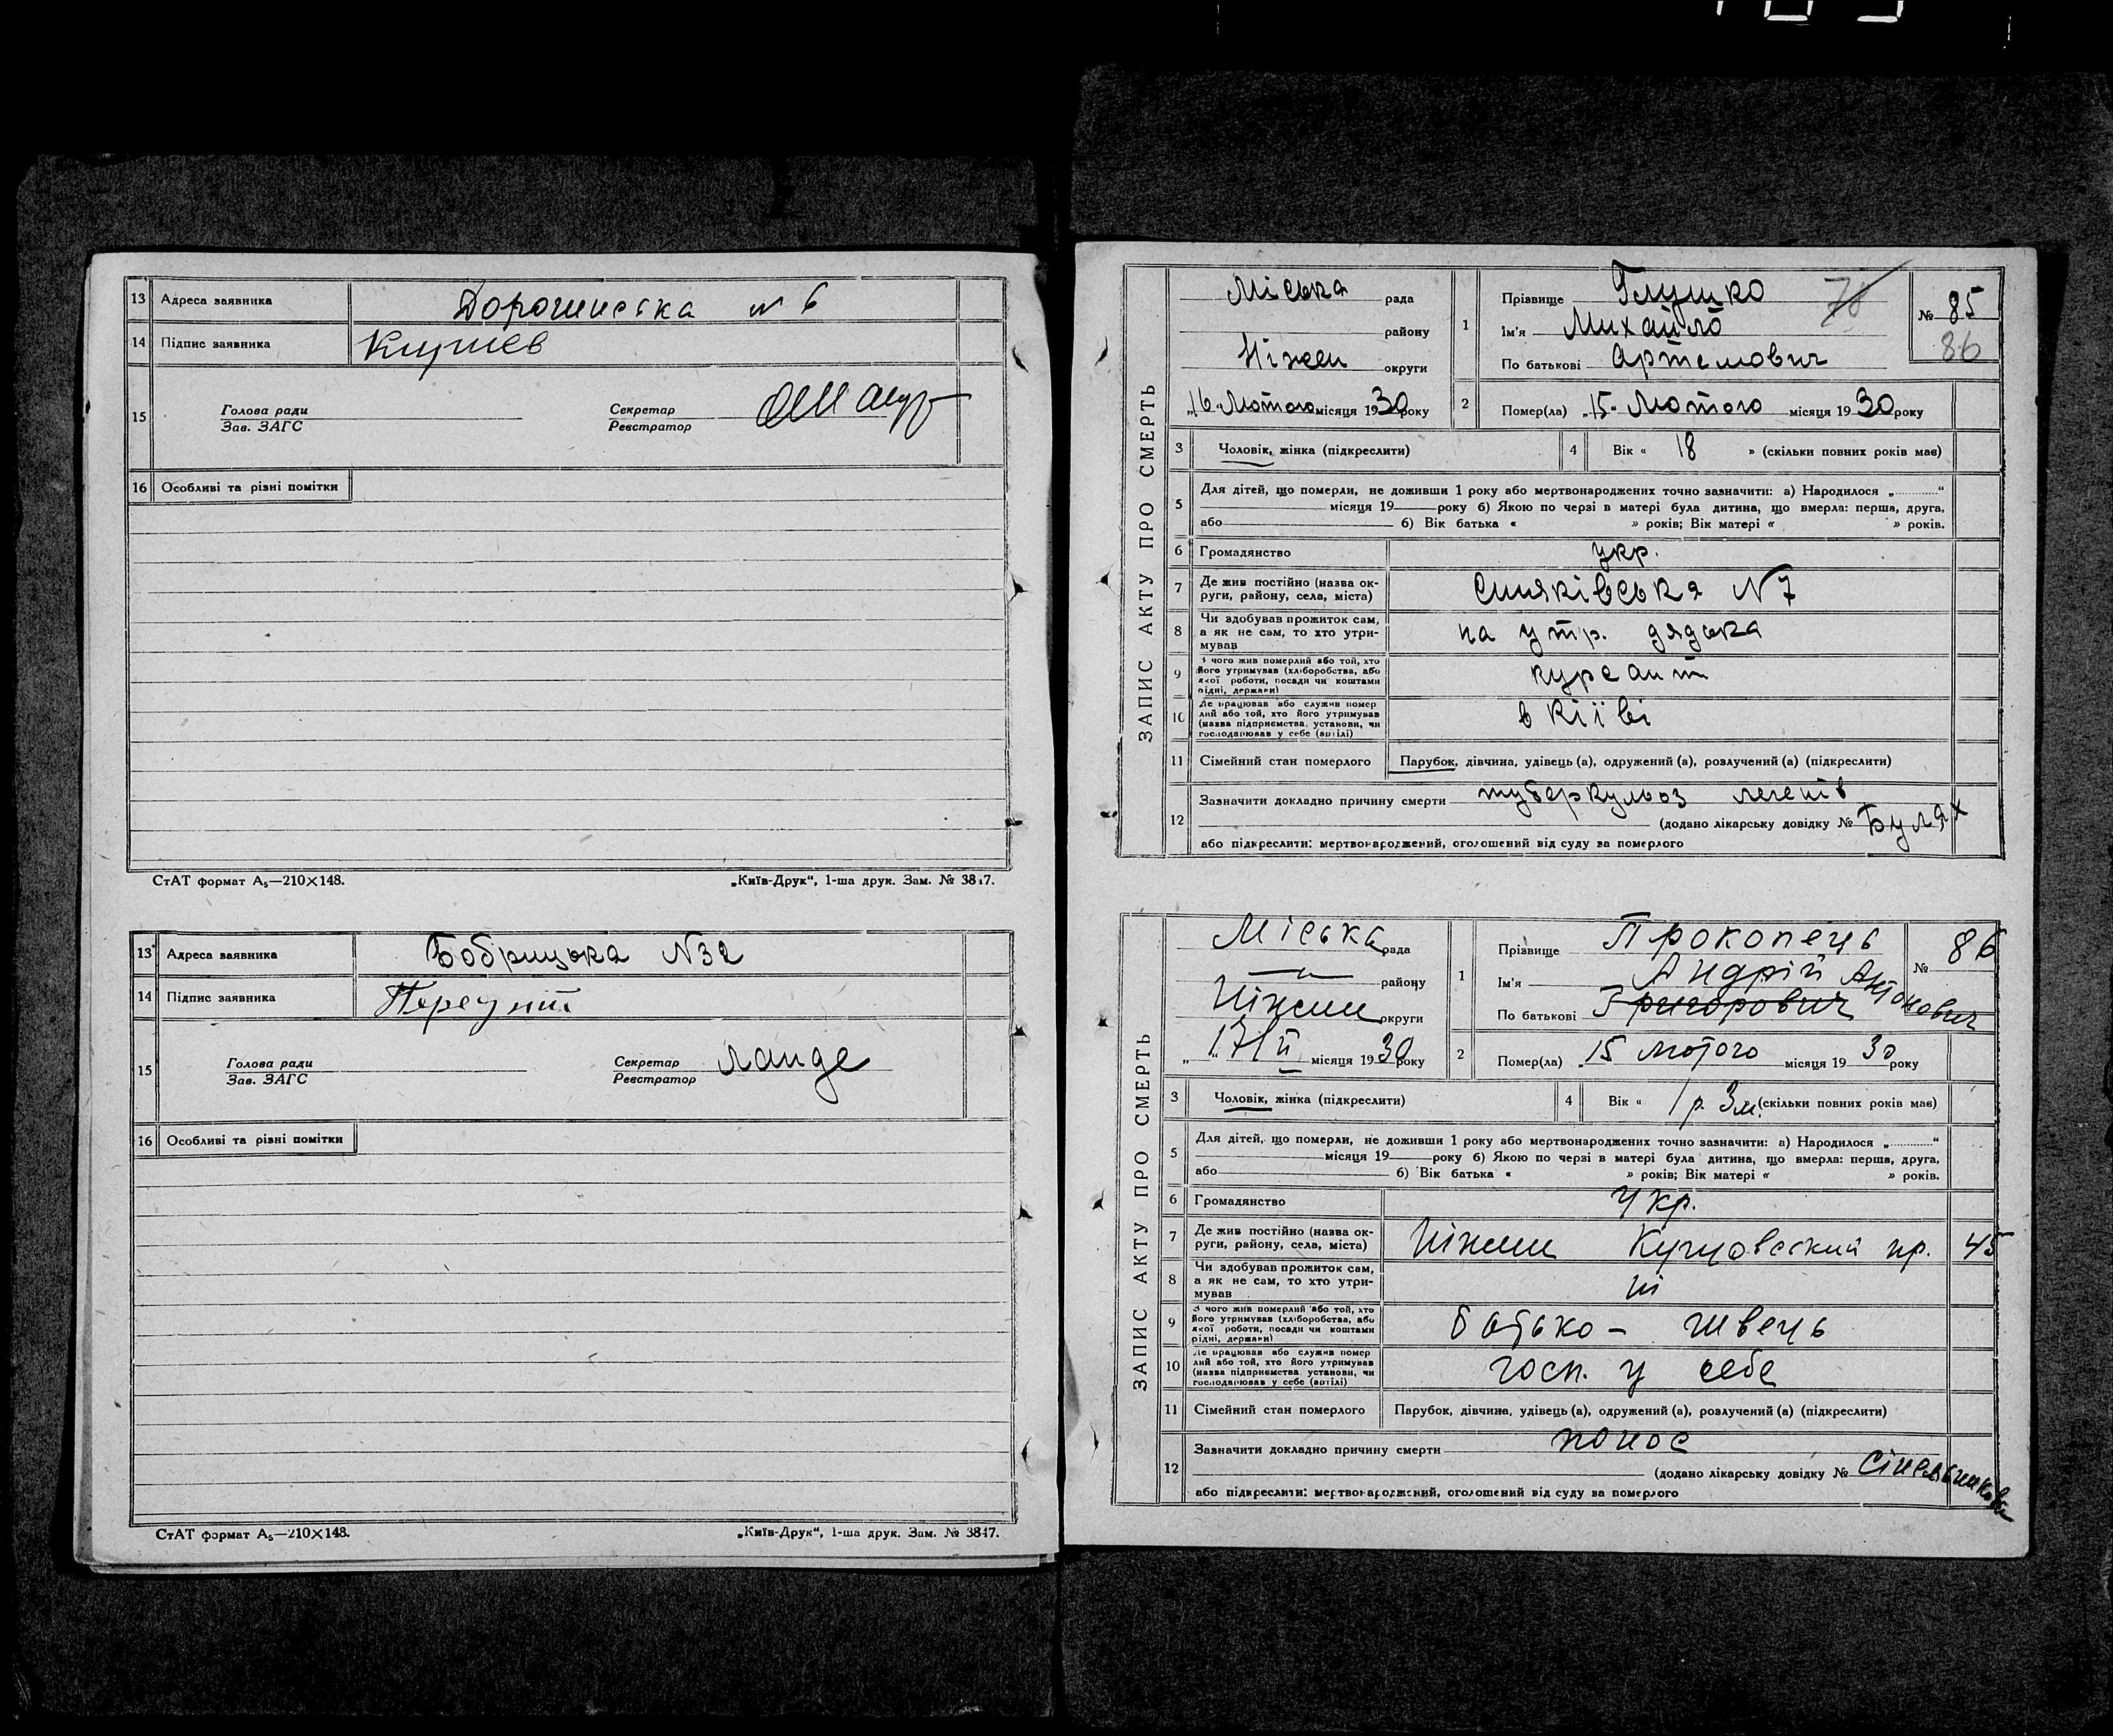 13 Адреса заявника Дорогинська № 6
14 Підпис заявника
15 Голова ради Секретар
Зав. ЗАГС Реєстратор
16 Особливі та різні помітки
СтАТ формат А₅—210×148. „Київ-Друк“, 1-ша друк. Зам. № 3817.
13 Адреса заявника Бобрицька №32
14 Підпис заявника
15 Голова ради Секретар Ланде
Зав. ЗАГС Реєстратор
16 Особливі та різні помітки
СтАТ формат А₅—210×148. „Київ-Друк“, 1-ша друк. Зам. № 3817.
ЗАПИС АКТУ ПРО СМЕРТЬ
Міська рада
району
Ніжен округи
„16“ Лютого місяця 1930 року
1 Прізвище Глушко
Ім'я Михайло
По батькові Артемович
78
№ 85
86
2 Помер(ла) „15“ Лютого місяця 1930 року
3 Чоловік, жінка (підкреслити) 4 Вік « 18 » (скільки повних років має)
5 Для дітей, що померли, не доживши 1 року або мертвонароджених точно зазначити: а) Народилося „............“
місяця 19 року б) Якою по черзі в матері була дитина, що вмерла: перша, друга,
або б) Вік батька « » років; Вік матері « » років.
6 Громадянство укр.
7 Де жив постійно (назва округи, району, села, міста) Синяківська №7
8 Чи здобував прожиток сам, а як не сам, то хто утримував на утр. дядька
9 З чого жив померлий або той, хто його утримував (хліборобства, або якої роботи, посади чи коштами рідні, держави) курсант
10 Де працював або служив померлий або той, хто його утримував (назва підприємства, установи, чи господарював у себе (артілі) в Кіїві
11 Сімейний стан померлого Парубок, дівчина, удівець (а), одружений (а), розлучений (а) (підкреслити)
12 Зазначити докладно причину смерти туберкульоз легенів
(додано лікарську довідку № Булах
або підкреслити: мертвонароджений, оголошений від суду за померлого
ЗАПИС АКТУ ПРО СМЕРТЬ
Міська рада
—"— району
Ніжин округи
„17/II“ місяця 1930 року
1 Прізвище Прокопець
Ім'я Андрій Антонович
По батькові Григорович
№ 86
2 Помер(ла) „15 лютого місяця 1930 року
3 Чоловік, жінка (підкреслити) 4 Вік « 1 р. 3 м. (скільки повних років має)
5 Для дітей, що померли, не доживши 1 року або мертвонароджених точно зазначити: а) Народилося „............“
місяця 19 року б) Якою по черзі в матері була дитина, що вмерла: перша, друга,
або б) Вік батька « » років; Вік матері « » років.
6 Громадянство Укр.
7 Де жив постійно (назва округи, району, села, міста) Ніжин пр. 45
8 Чи здобував прожиток сам, а як не сам, то хто утримував ні
9 З чого жив померлий або той, хто його утримував (хліборобства, або якої роботи, посади чи коштами рідні, держави) батько – швець
10 Де працював або служив померлий або той, хто його утримував (назва підприємства, установи, чи господарював у себе (артілі) госп. у себе
11 Сімейний стан померлого Парубок, дівчина, удівець (а), одружений (а), розлучений (а) (підкреслити)
12 Зазначити докладно причину смерти понос
(додано лікарську довідку № Сінельникова
або підкреслити: мертвонароджений, оголошений від суду за померлого